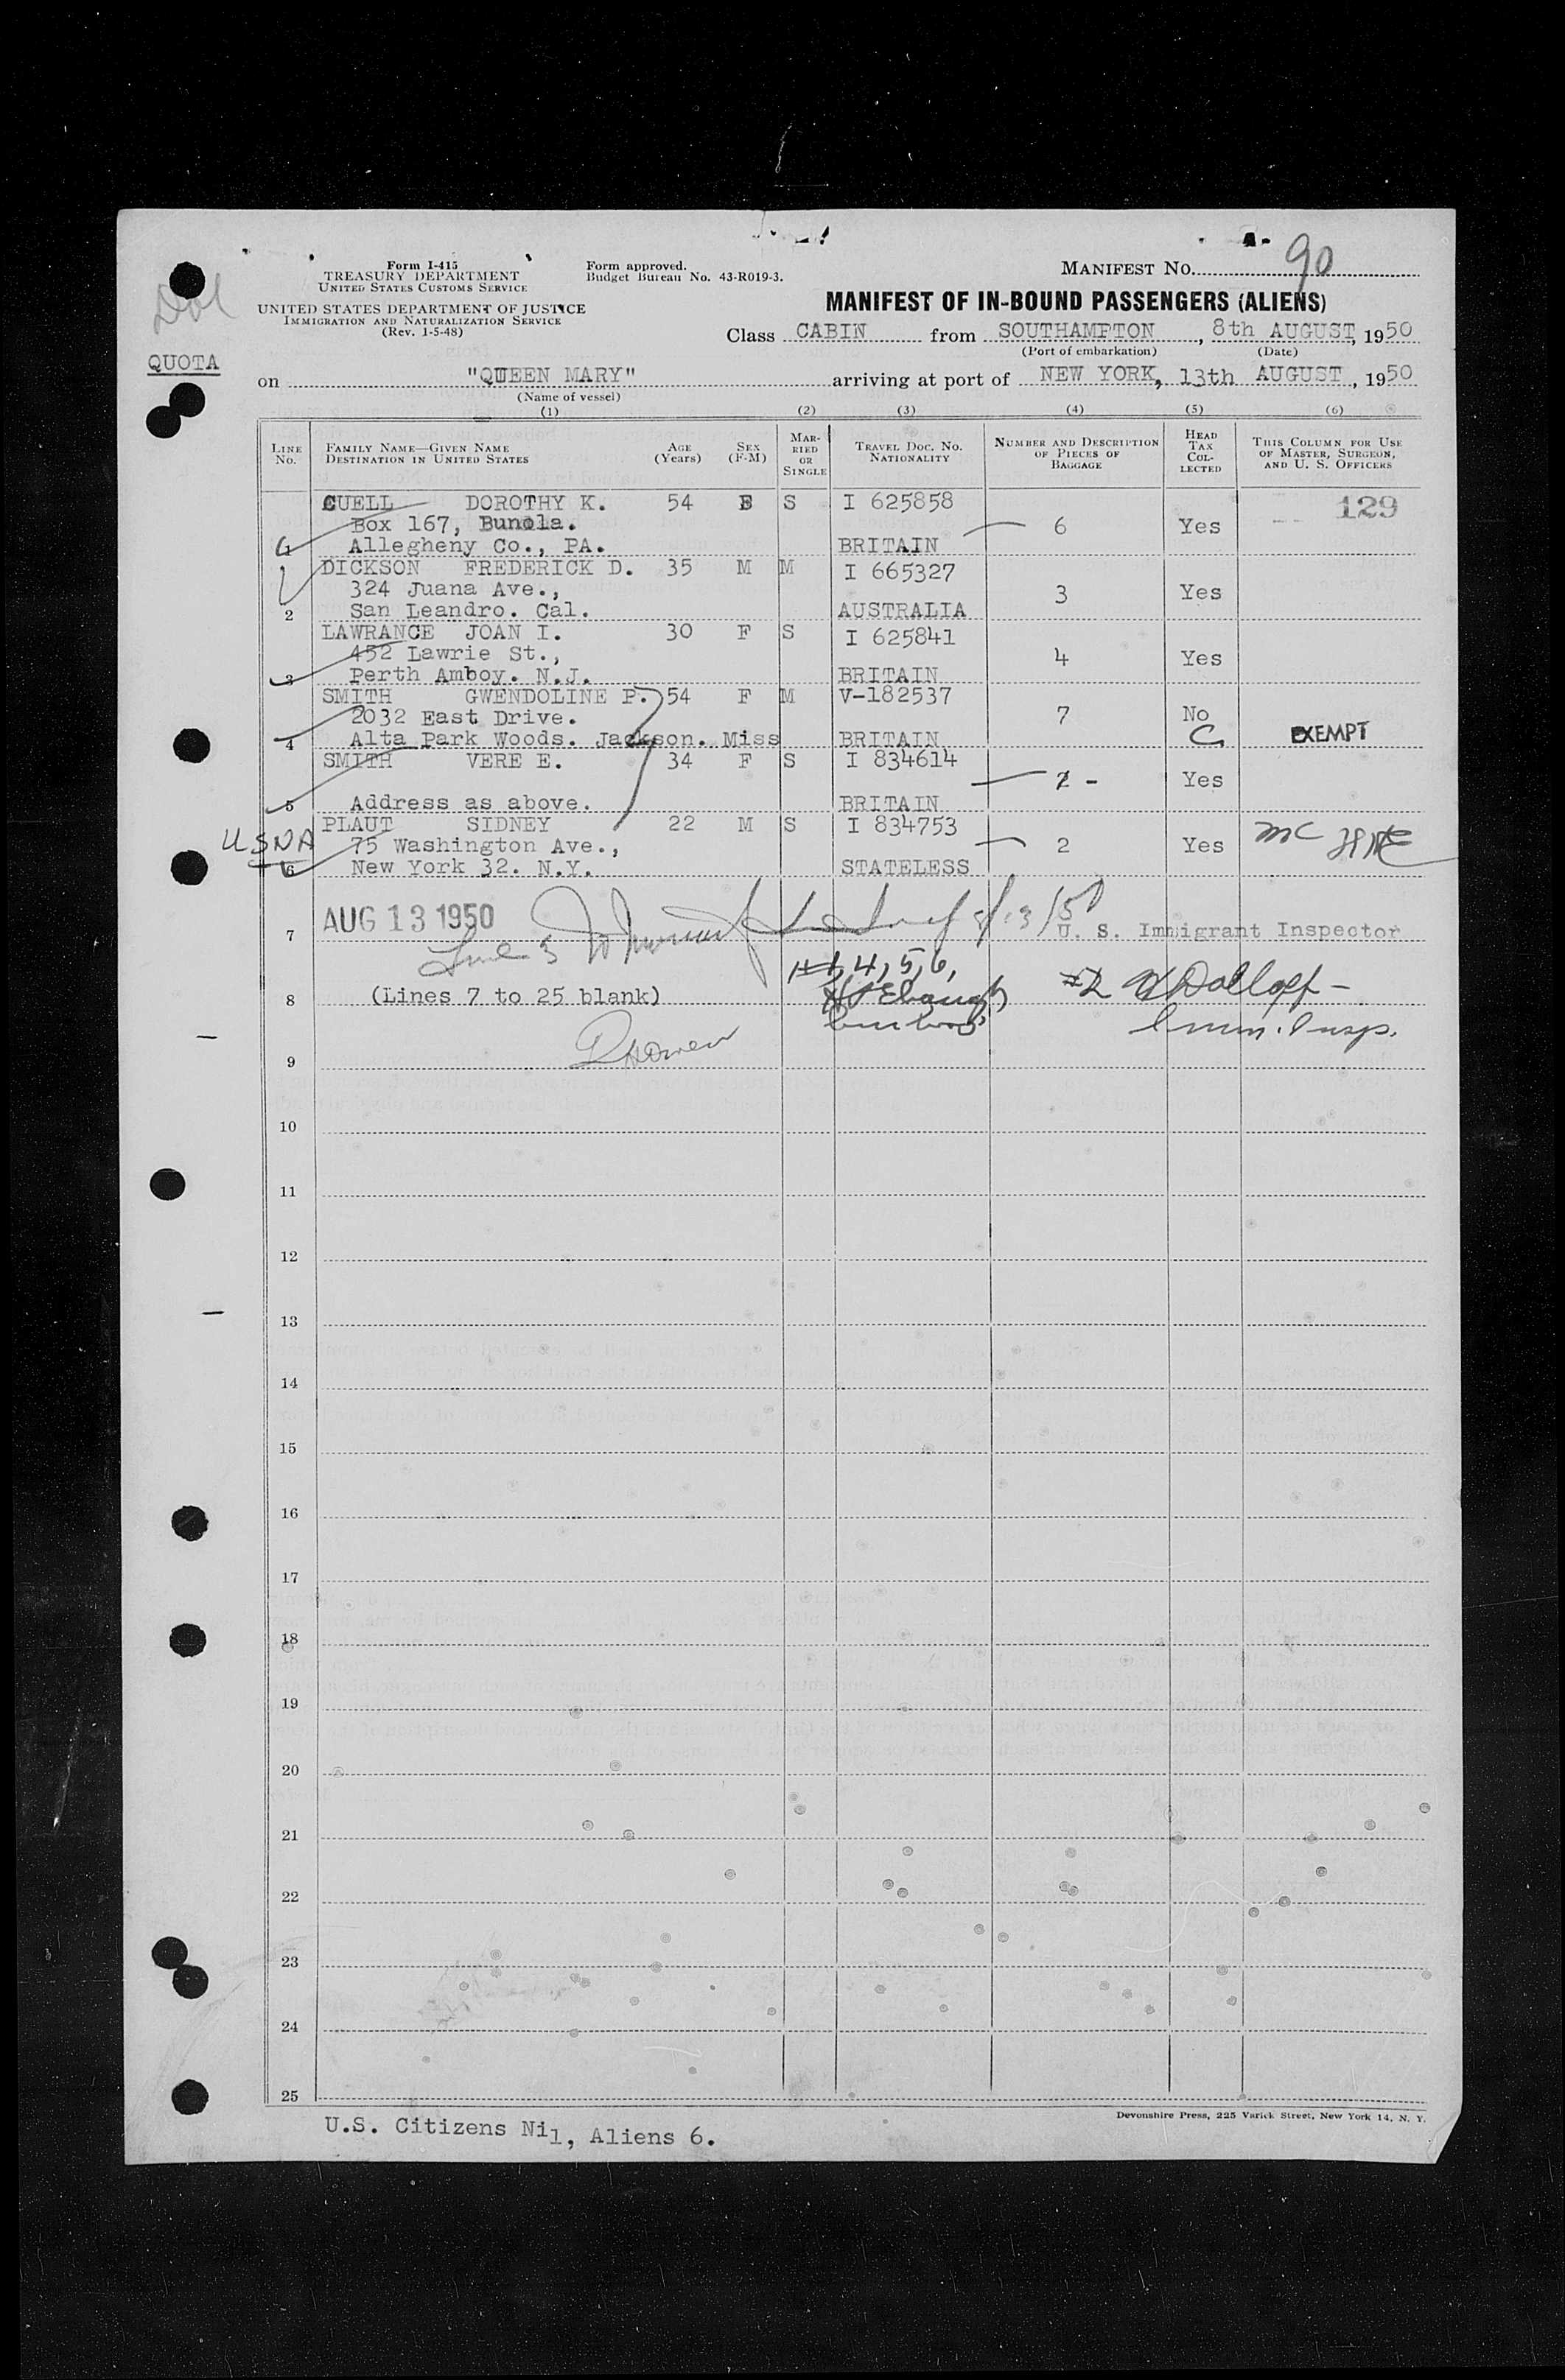 90
Form I-415
TREASURY DEPARTMENT
UNITED STATES CUSTOMS SERVICE
Form approved.
Budget Bureau No. 43-R019-3.
MANIFEST No.
UNITED STATES DEPARTMENT OF JUSTICE
IMMIGRATION AND NATURALIZATION SERVICE
(Rev. 1-5-48)
MANIFEST OF IN-BOUND PASSENGERS (ALIENS)
Class CABIN from SOUTHAMPTON, 8th AUGUST, 1950
(Port of embarkation) (Date)
QUOTA
on "QUEEN MARY" arriving at port of NEW YORK, 13th AUGUST, 1950
(Name of vessel)
(1) (2) (3) (4) (5) (6)
LINE No. FAMILY NAME—GIVEN NAME DESTINATION IN UNITED STATES AGE (Years) SEX (F-M) MARRIED OR SINGLE TRAVEL DOC. No. NATIONALITY NUMBER AND DESCRIPTION OF PIECES OF BAGGAGE HEAD TAX COLLECTED THIS COLUMN FOR USE OF MASTER, SURGEON, AND U. S. OFFICERS
CUELL DOROTHY K. 54 S I 625858 129
Box 167, Bunola. 6 Yes
Allegheny Co., PA. BRITAIN
DICKSON FREDERICK D. 35 M M I 665327
324 Juana Ave., 3 Yes
2 San Leandro. Cal. AUSTRALIA
LAWRANCE JOAN I. 30 F S I 625841
452 Lawrie St., 4 Yes
3 Perth Amboy. N.J. BRITAIN
SMITH GWENDOLINE P. 54 F M V-182537
2032 East Drive. 7 No
4 Alta Park Woods. Jackson. Miss BRITAIN C EXEMPT
SMITH VERE E. 34 F S I 834614
- Yes
5 Address as above. BRITAIN
PLAUT SIDNEY 22 M S I 834753
USNA 75 Washington Ave., 2 Yes
6 New York 32. N.Y. STATELESS
7 AUG 13 1950 8/13/50 U. S. Immigrant Inspector
Line 3
#1, 4, 5, 6,
8 (Lines 7 to 25 blank) #2
Imm. Insp.
9
10
11
12
13
14
15
16
17
18
19
20
21
22
23
24
25
Devonshire Press, 225 Varick Street, New York 14, N. Y.
U.S. Citizens Nil, Aliens 6.